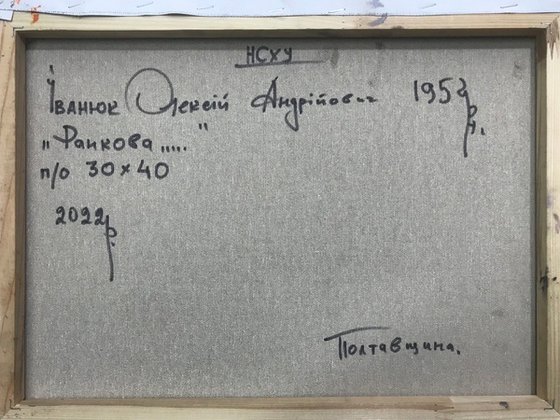 НСХУ
Іванюк Олексій Андрійович 1952 р.н.
„Ранкова „....."
п/о 30×40
2022р.
Полтавщина.